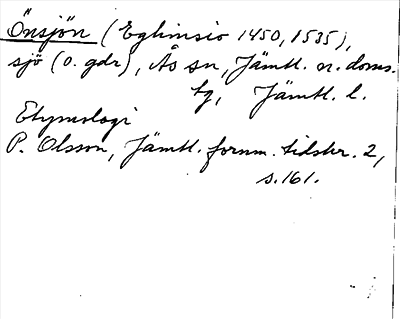 Önsjön (Eglinsio 1450, 1535),
sjö (o. gdr), Ås sn, Jämtl. n. doms.
tg, Jämtl. l.
Etymologi
P. Olsson, Jämtl. fornm. tidskr. 2,
s. 161.